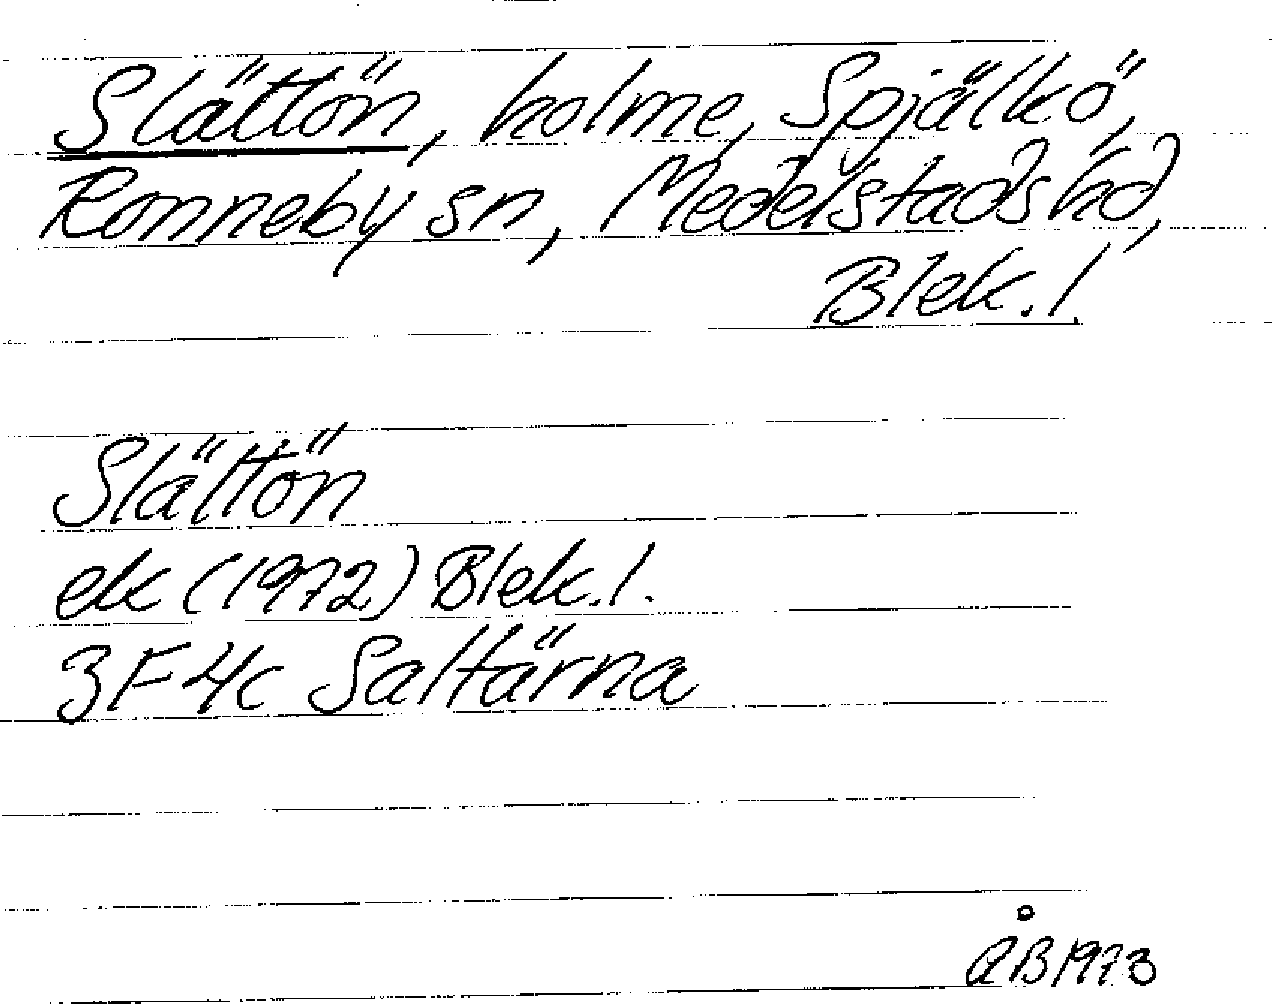 Slättön, holme, Spjälkö,
Ronneby sn, Medelstads hd,
Blek. l.
Slättön
ek (1972) Blek. l.
3F4c Saltärna
ÅB 1973